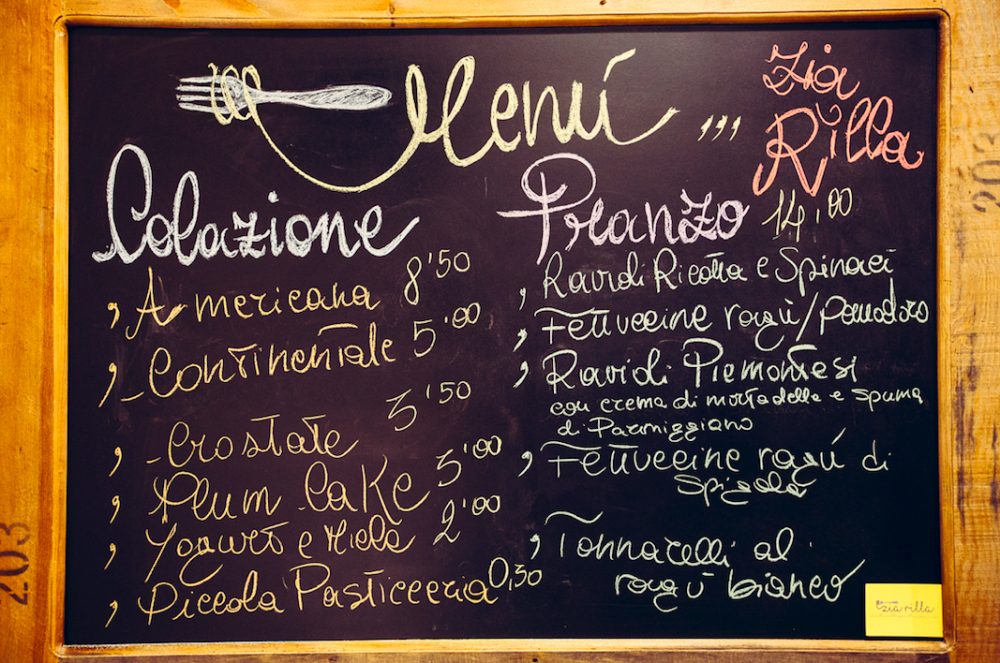 Menú ,,,
Zia
Rilla
Colazione
, Americana 8'50
, Continentale 5'00
, Crostate 3'50
, Plum Cake 3'00
, Yogurt e Miele 2'00
, Piccola Pasticceria 0,50
Pranzo 14,00
, Ravioli Ricotta e Spinaci
, Fettuccine ragù/pomodoro
, Ravioli Piemontesi
con crema di mortadella e spuma
di Parmiggiano
, Fettuccine ragú di
Spigola
, Tonnarelli al
ragù bianco
zia rilla
203
203